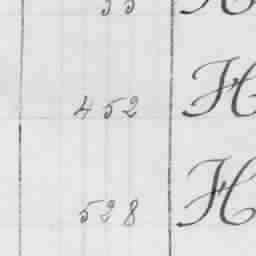 452 H
528 H